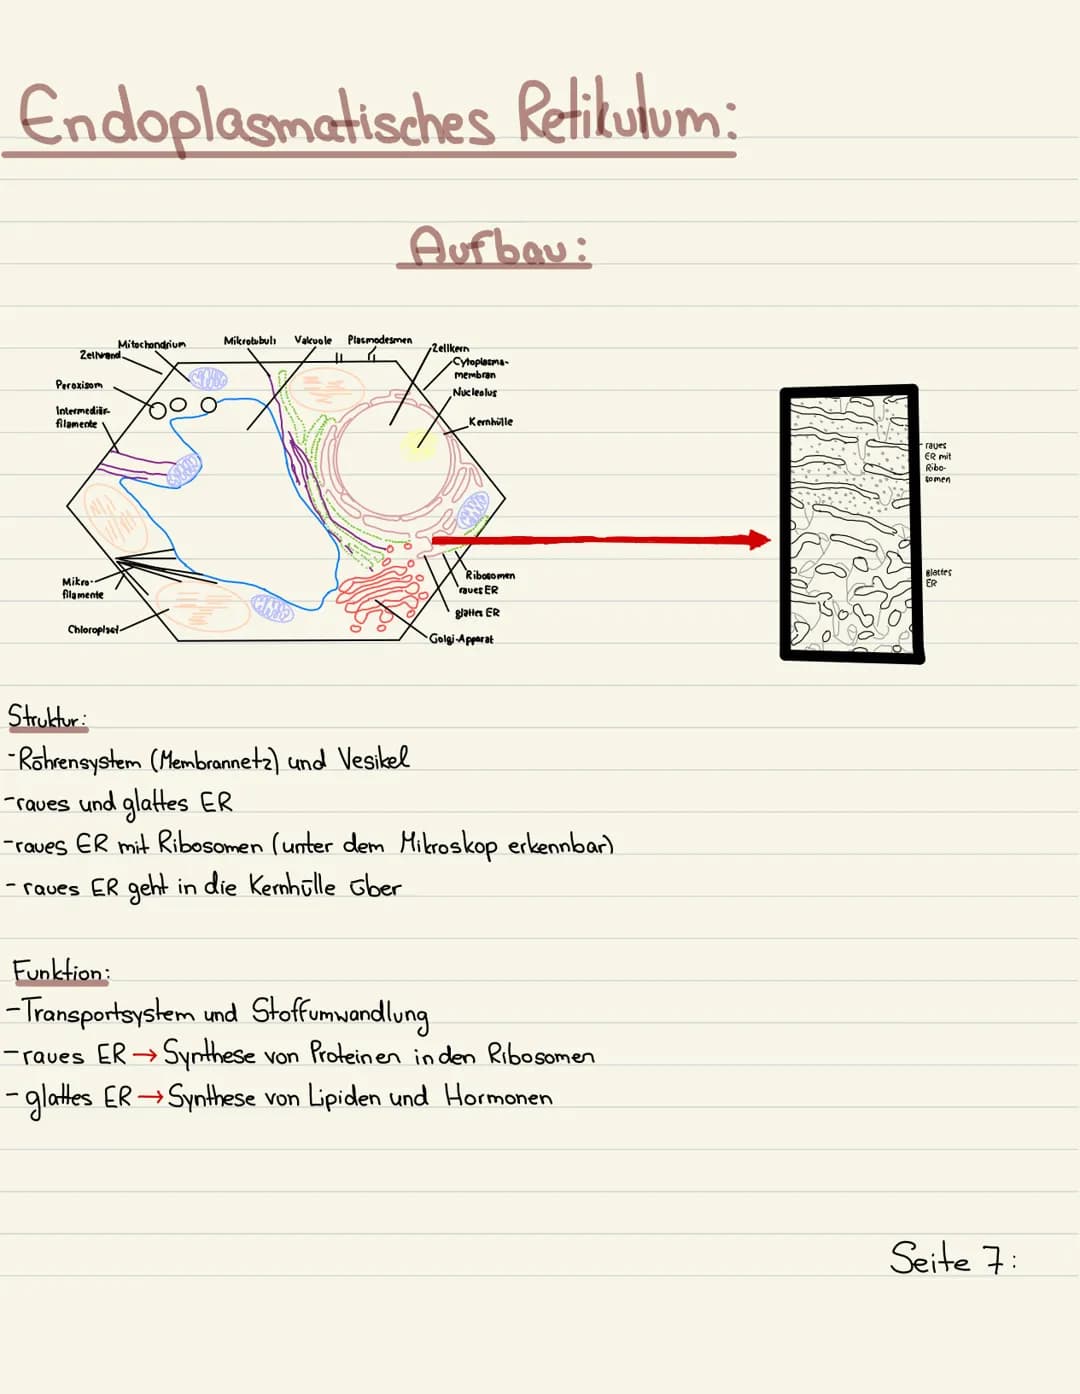 Endoplasmatisches Retikulum:
Aufbau:
Mitochondrium
Mikrotubuli
Vakuole
Plasmodesmen
Zellwand
Zellkern
Cytoplasma-
membran
Peroxisom
Nucleolus
Intermediär-
filamente
Kernhülle
raues
ER mit
Ribo-
somen
Mikro-
filamente
Ribosomen
raues ER
glattes
ER
glattes ER
Chloroplast
Golgi-Apparat
Struktur:
-Röhrensystem (Membrannetz) und Vesikel
-raues und glattes ER
-raues ER mit Ribosomen (unter dem Mikroskop erkennbar)
- raues ER geht in die Kernhülle über
Funktion:
-Transportsystem und Stoffumwandlung
-raues ER → Synthese von Proteinen in den Ribosomen
- glattes ER → Synthese von Lipiden und Hormonen
Seite 7: